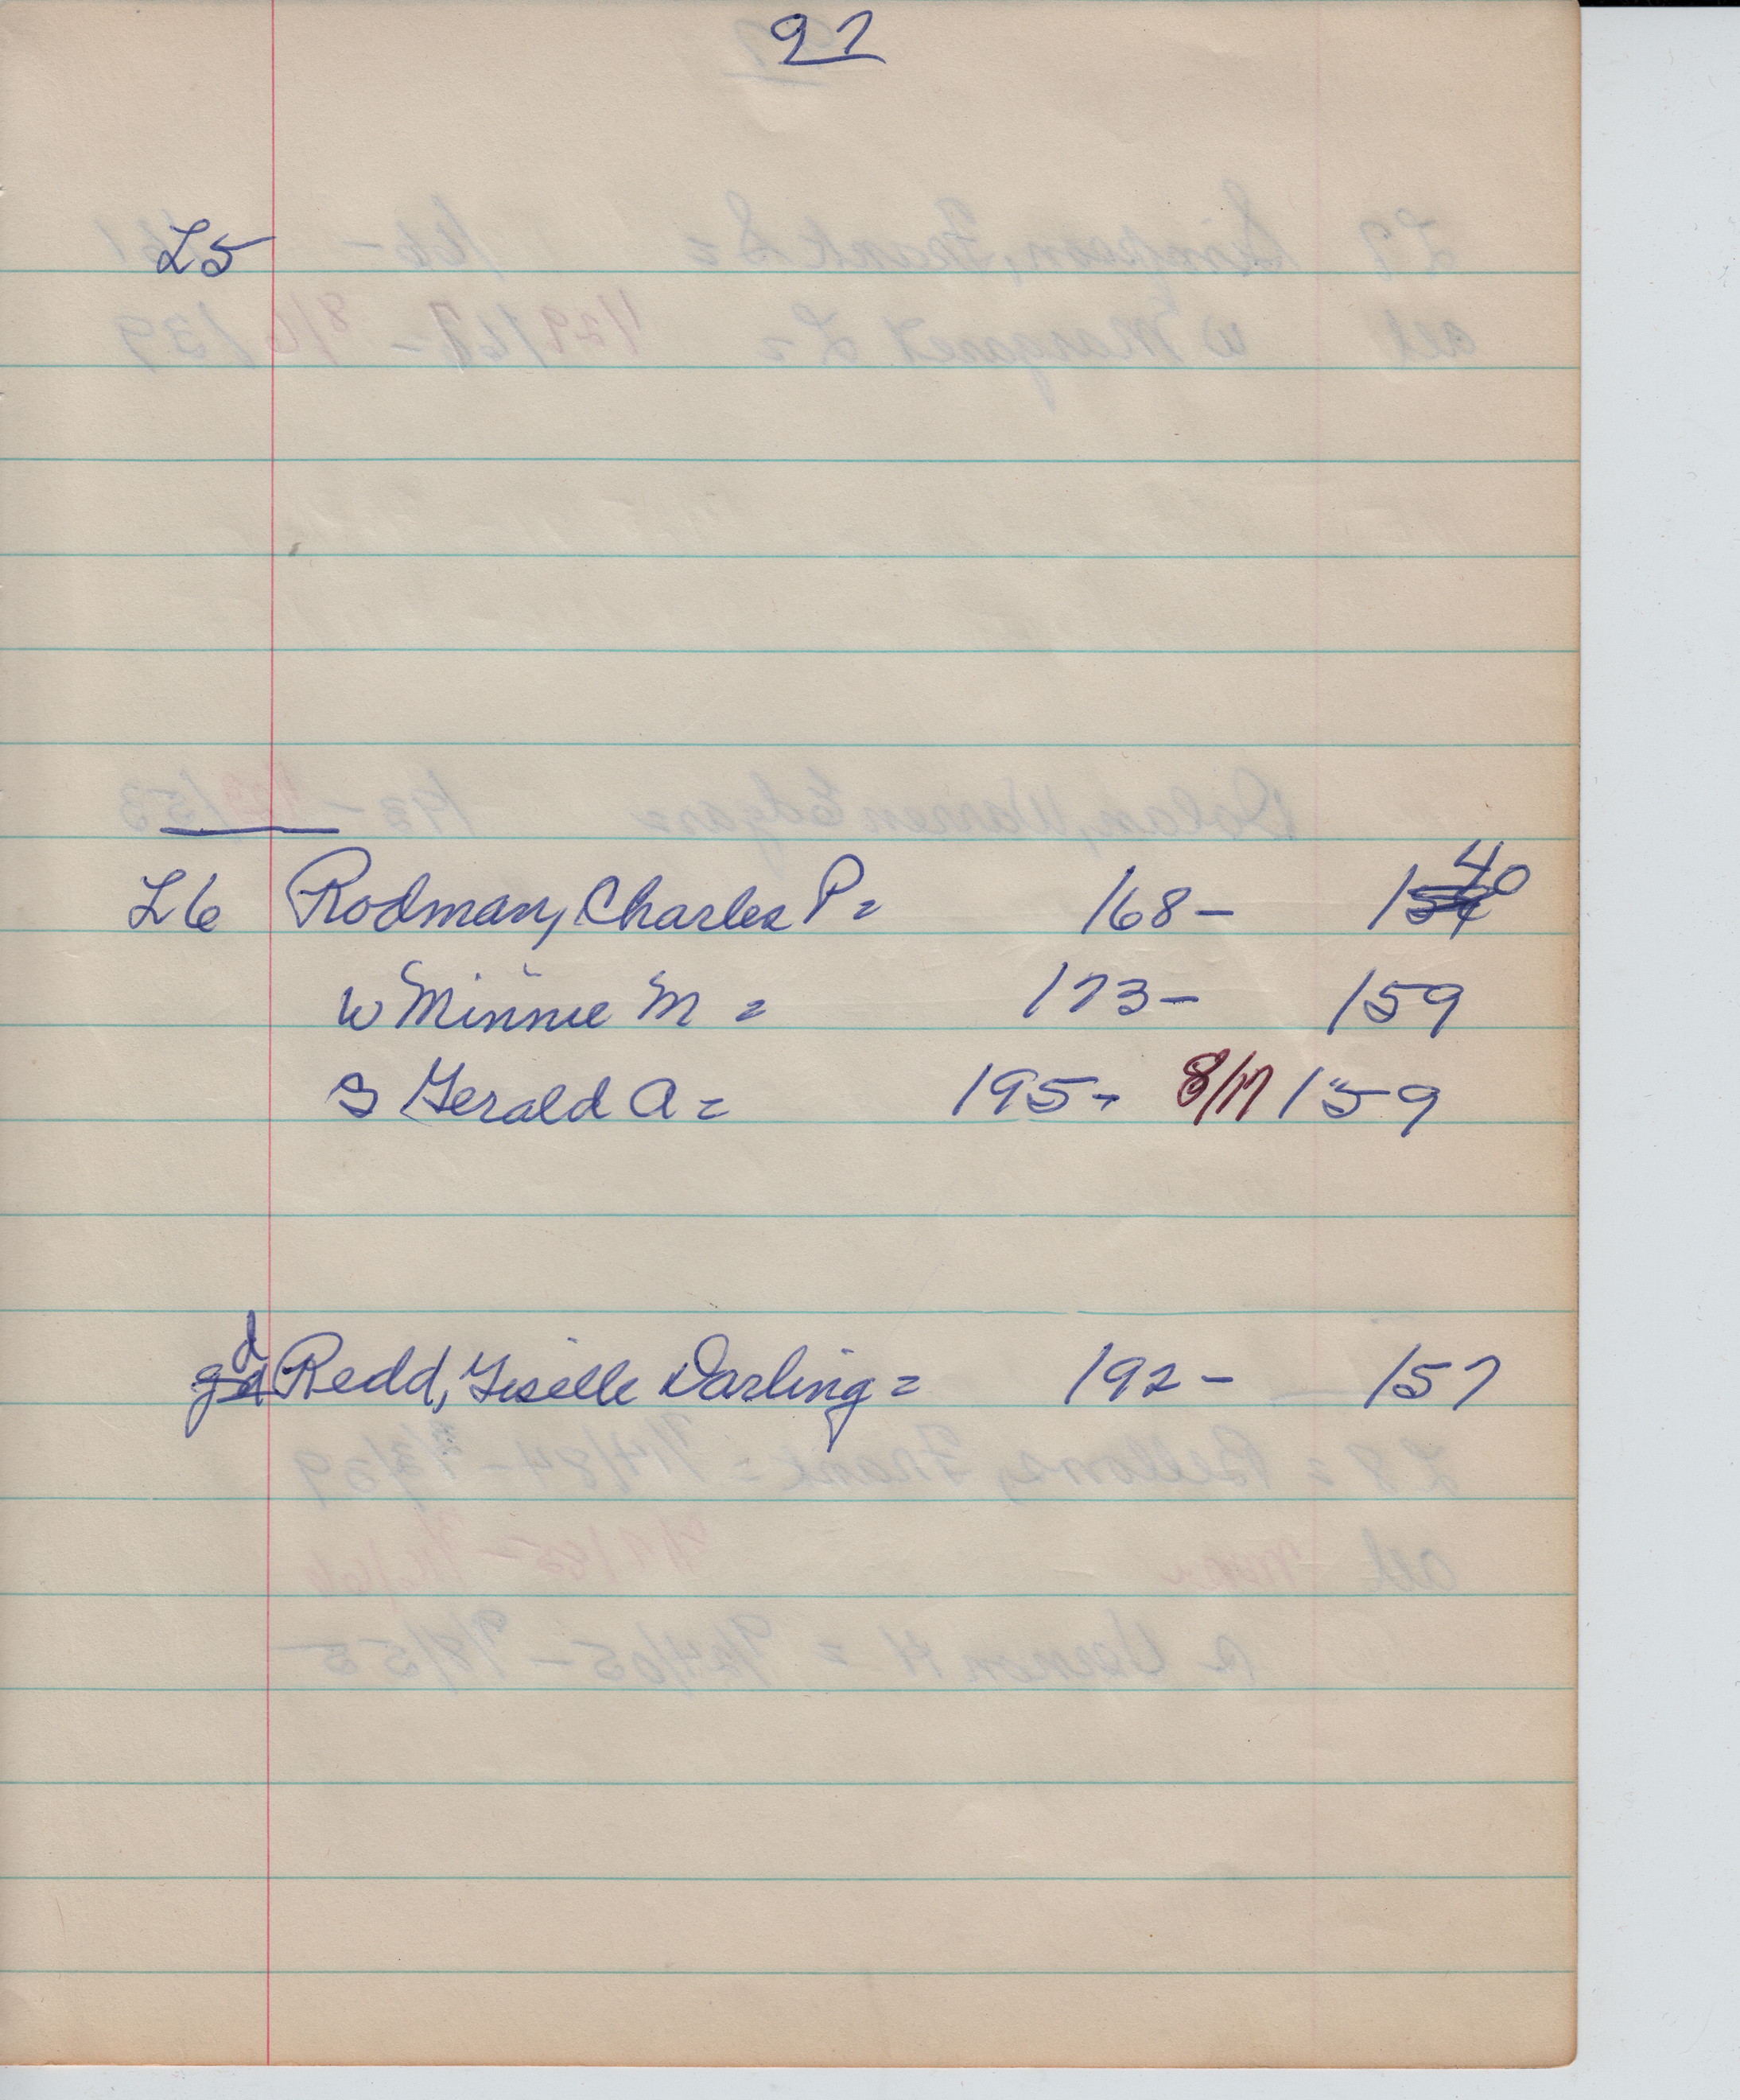 97
L5
L6 Rodman, Charles P= /68- /40
w Minnie M = /73- /59
s Gerald A= /95- 8/17/59
d Redd, Giselle Darling= /92- /57